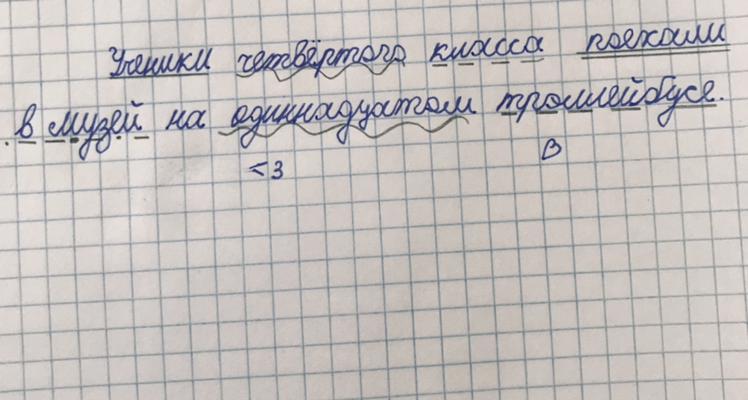 Ученики четвёртого класса поехали
в музей на одиннадцатом троллейбусе.
<3 В